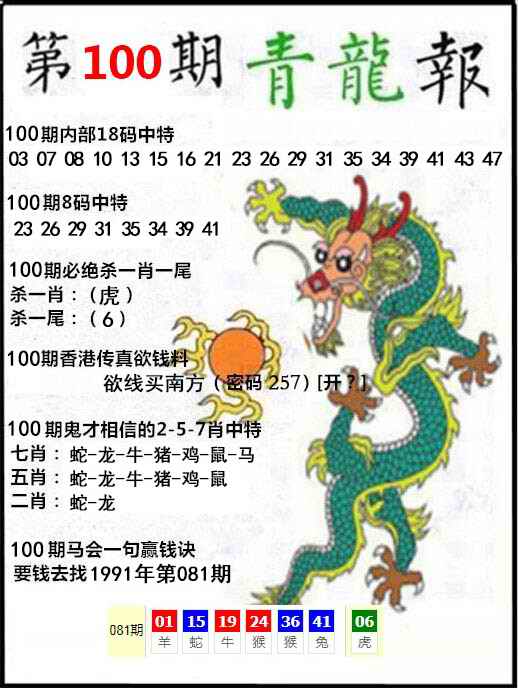 第100期青龍報
100期内部18码中特
03 07 08 10 13 15 16 21 23 26 29 31 35 34 39 41 43 47
100期8码中特
23 26 29 31 35 34 39 41
100期必绝杀一肖一尾
杀一肖：（虎）
杀一尾：（6）
100期香港传真欲钱料
欲线买南方（密码 257）[开？]
100期鬼才相信的2-5-7肖中特
七肖：蛇-龙-牛-猪-鸡-鼠-马
五肖：蛇-龙-牛-猪-鸡-鼠
二肖：蛇-龙
100期马会一句赢钱诀
要钱去找1991年第081期
081期 01 15 19 24 36 41 06
羊 蛇 牛 猴 猴 兔 虎